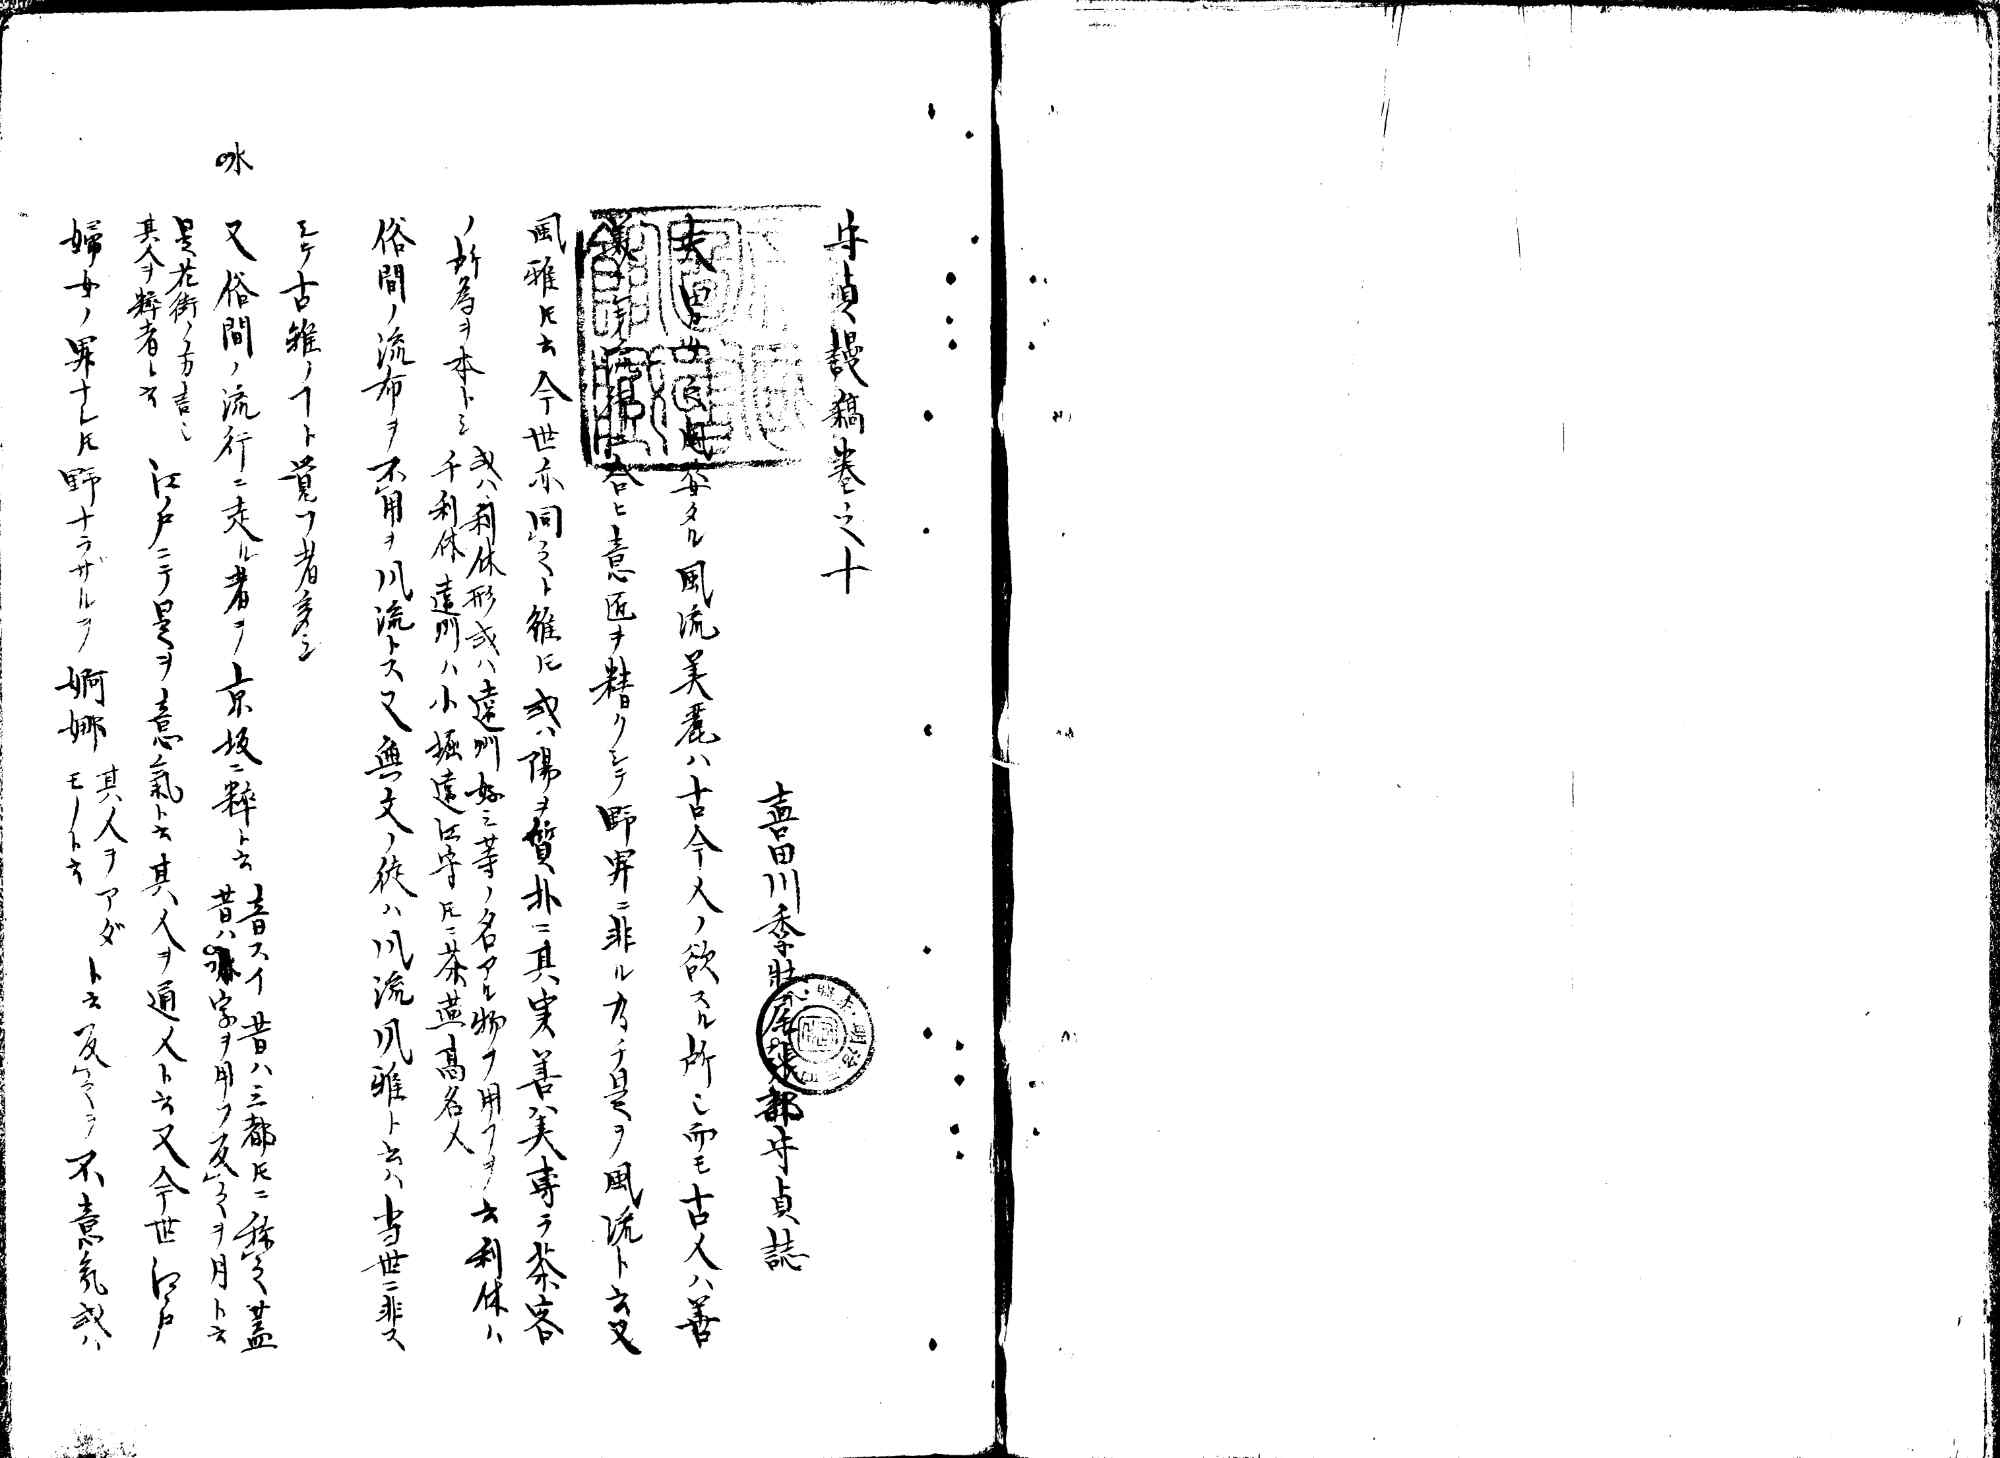 守貞謾稿巻之十
喜田川季荘尾張部守貞誌
夫男女ノ風姿タル風流美麗ハ古今人ノ欲スル所也而モ古人ハ善
美ニシテ流行ニ合ヒ意匠ヲ精クシテ野卑ニ非ル乃チ是ヲ風流ト云又
風雅ㇳモ云今世亦同之ト雖ㇳモ或ハ陽ヲ質朴ニ其実善ハ美専ラ茶客
ノ所為ヲ本トシ
或ハ利休形或ハ遠州好ミ等ノ名アル物ヲ用フヲ云利休ハ
千利休遠州ハ小堀遠江守ㇳモニ茶燕高名人
俗間ノ流布ヲ不用ヲ風流トス又無文ノ徒ハ風流風雅ト云ハ当世ニ非ス
シテ古雅ノヿト覚フ者多シ
又俗間ノ流行ニ走ル者ヲ京坂ニ粋ト云
音スイ昔ハ三都ㇳモニ称之蓋
昔ハ㕩字ヲ用フ反之ヲ月ト云
㕩
是花街ノ方言也
其人ヲ粹者ト云
江戸ニテ是ヲ意氣ト云其人ヲ通人ト云又今世江戸
婦女ノ卑ナレㇳモ野ナラザルヲ婀娜
其人ヲアダ
モノト云
ト云反之ヲ不意気或ハ